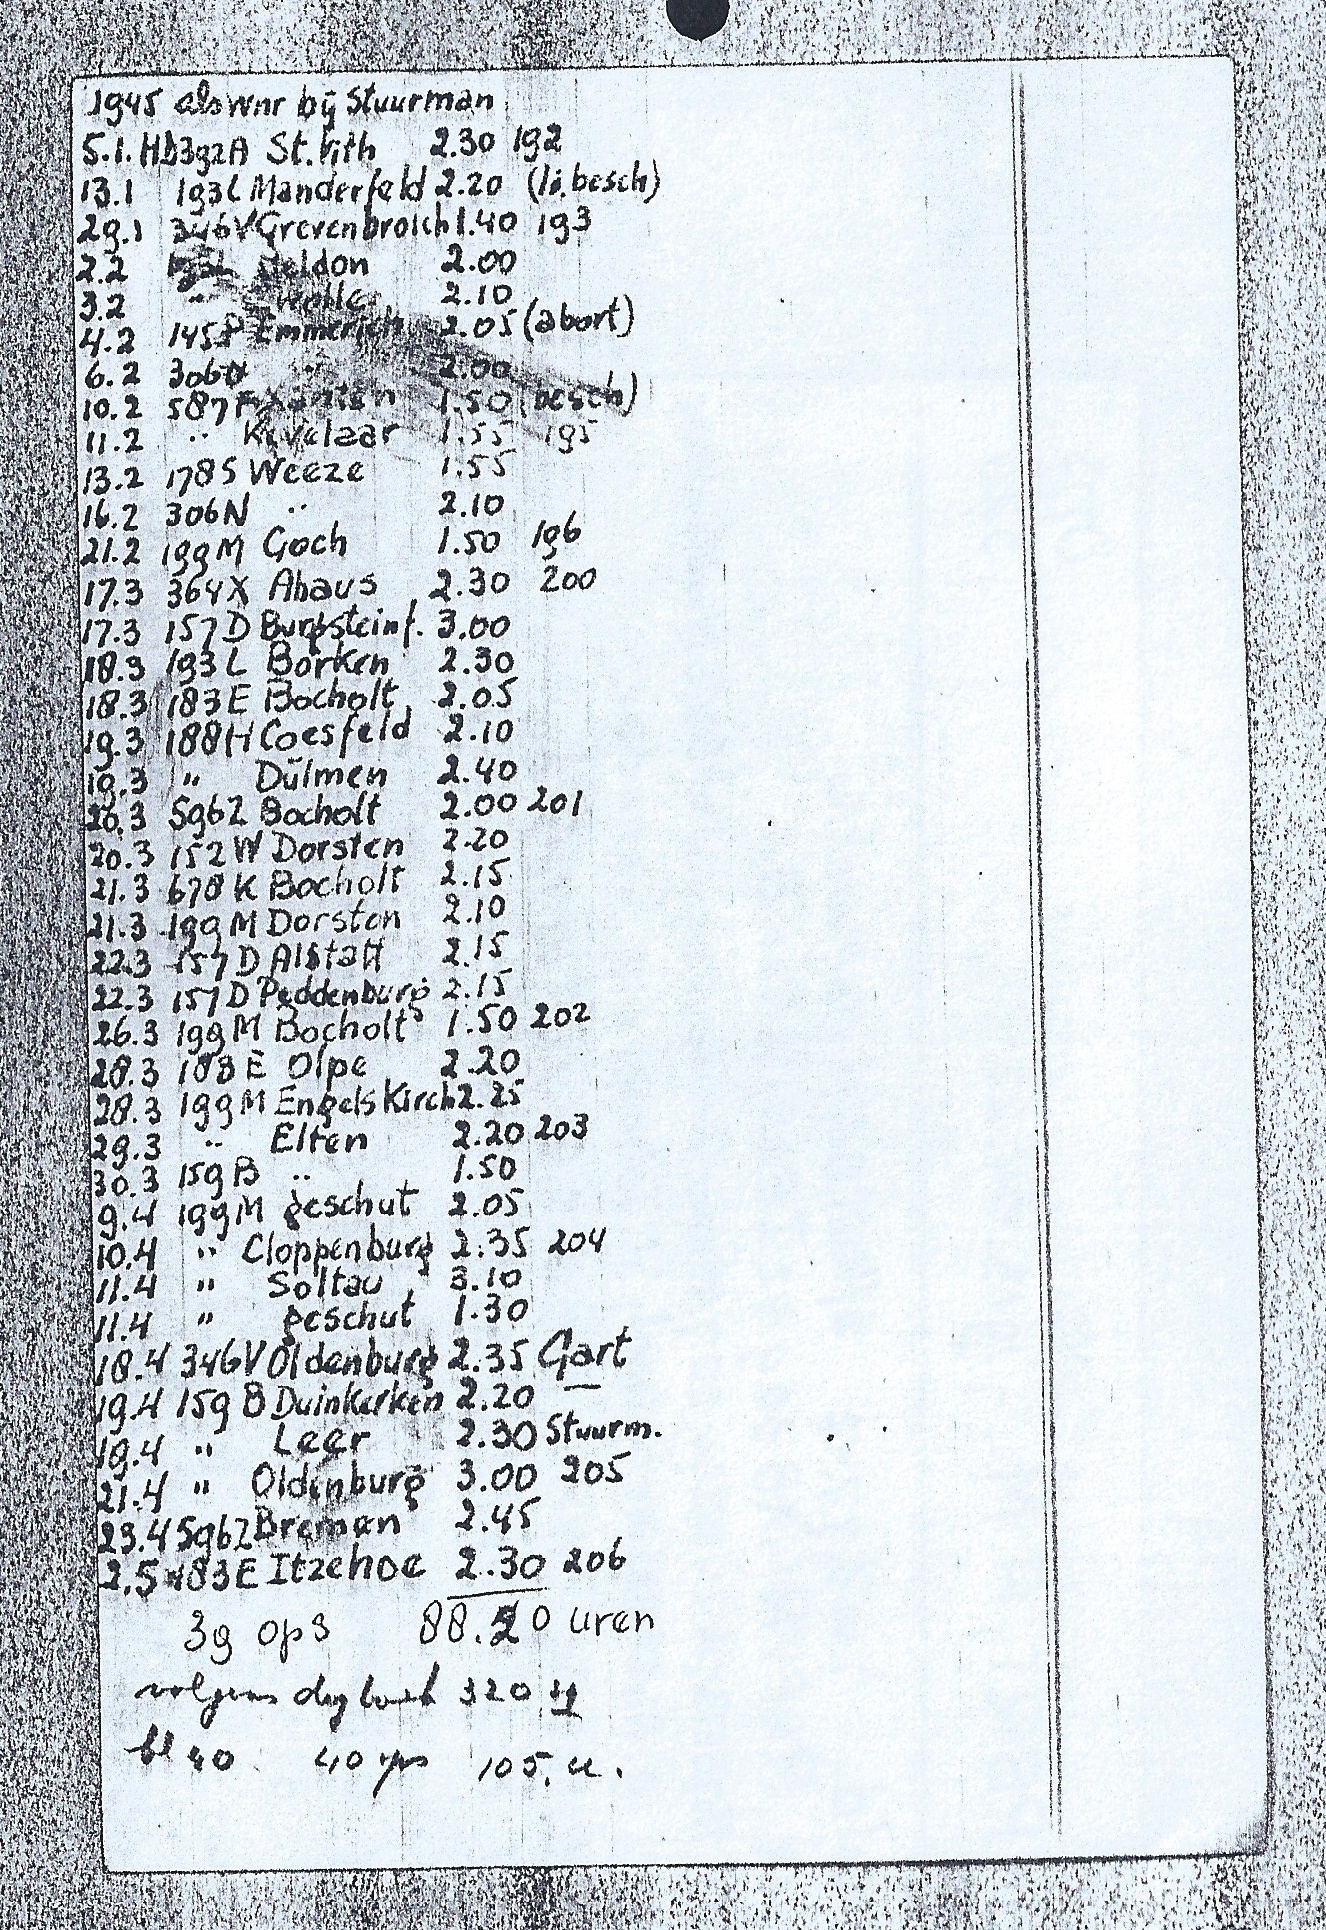 1945 als wnr bij Stuurman
5.1. HD392A St. Vith 2.30 192
13.1 193L Manderfeld 2.20 (li. besch)
29.1 346V Grevenbroich 1.40 193
2.2 Geldon 2.00
3.2 " 2.10
4.2 145P Emmerich 2.05 (abort)
6.2 306 " 2.00
10.2 587F Xanten 1.50 (besch)
11.2 " Kevelaar 1.55 195
13.2 178S Weeze 1.55
16.2 306N " 2.10
21.2 199M Goch 1.50 196
17.3 364X Ahaus 2.30 200
17.3 157D Burgsteinf. 3.00
18.3 193L Borken 2.30
18.3 183E Bocholt 2.05
19.3 188H Coesfeld 2.10
19.3 " Dülmen 2.40
20.3 596Z Bocholt 2.00 201
20.3 152W Dorsten 2.20
21.3 678K Bocholt 2.15
21.3 199M Dorston 2.10
22.3 157D Alstatt 2.15
22.3 157D Peddenburg 2.15
26.3 199M Bocholt 1.50 202
28.3 183E Olpe 2.20
28.3 199M Engelskirch 2.25
29.3 " Elten 2.20 203
30.3 159B " 1.50
9.4 199M geschut 2.05
10.4 " Cloppenburg 2.35 204
11.4 " Soltau 3.10
11.4 " geschut 1.30
18.4 346V Oldenburg 2.35 Gart
19.4 159B Duinkerken 2.20
19.4 " Leer 2.30 Stuurm.
21.4 " Oldenburg 3.00 205
23.4 596Z Bremen 2.45
2.5 183E Itzehoe 2.30 206
39 ops 88.20 uren
volgens dagboek 320
bl 40 40 ops 105. u.